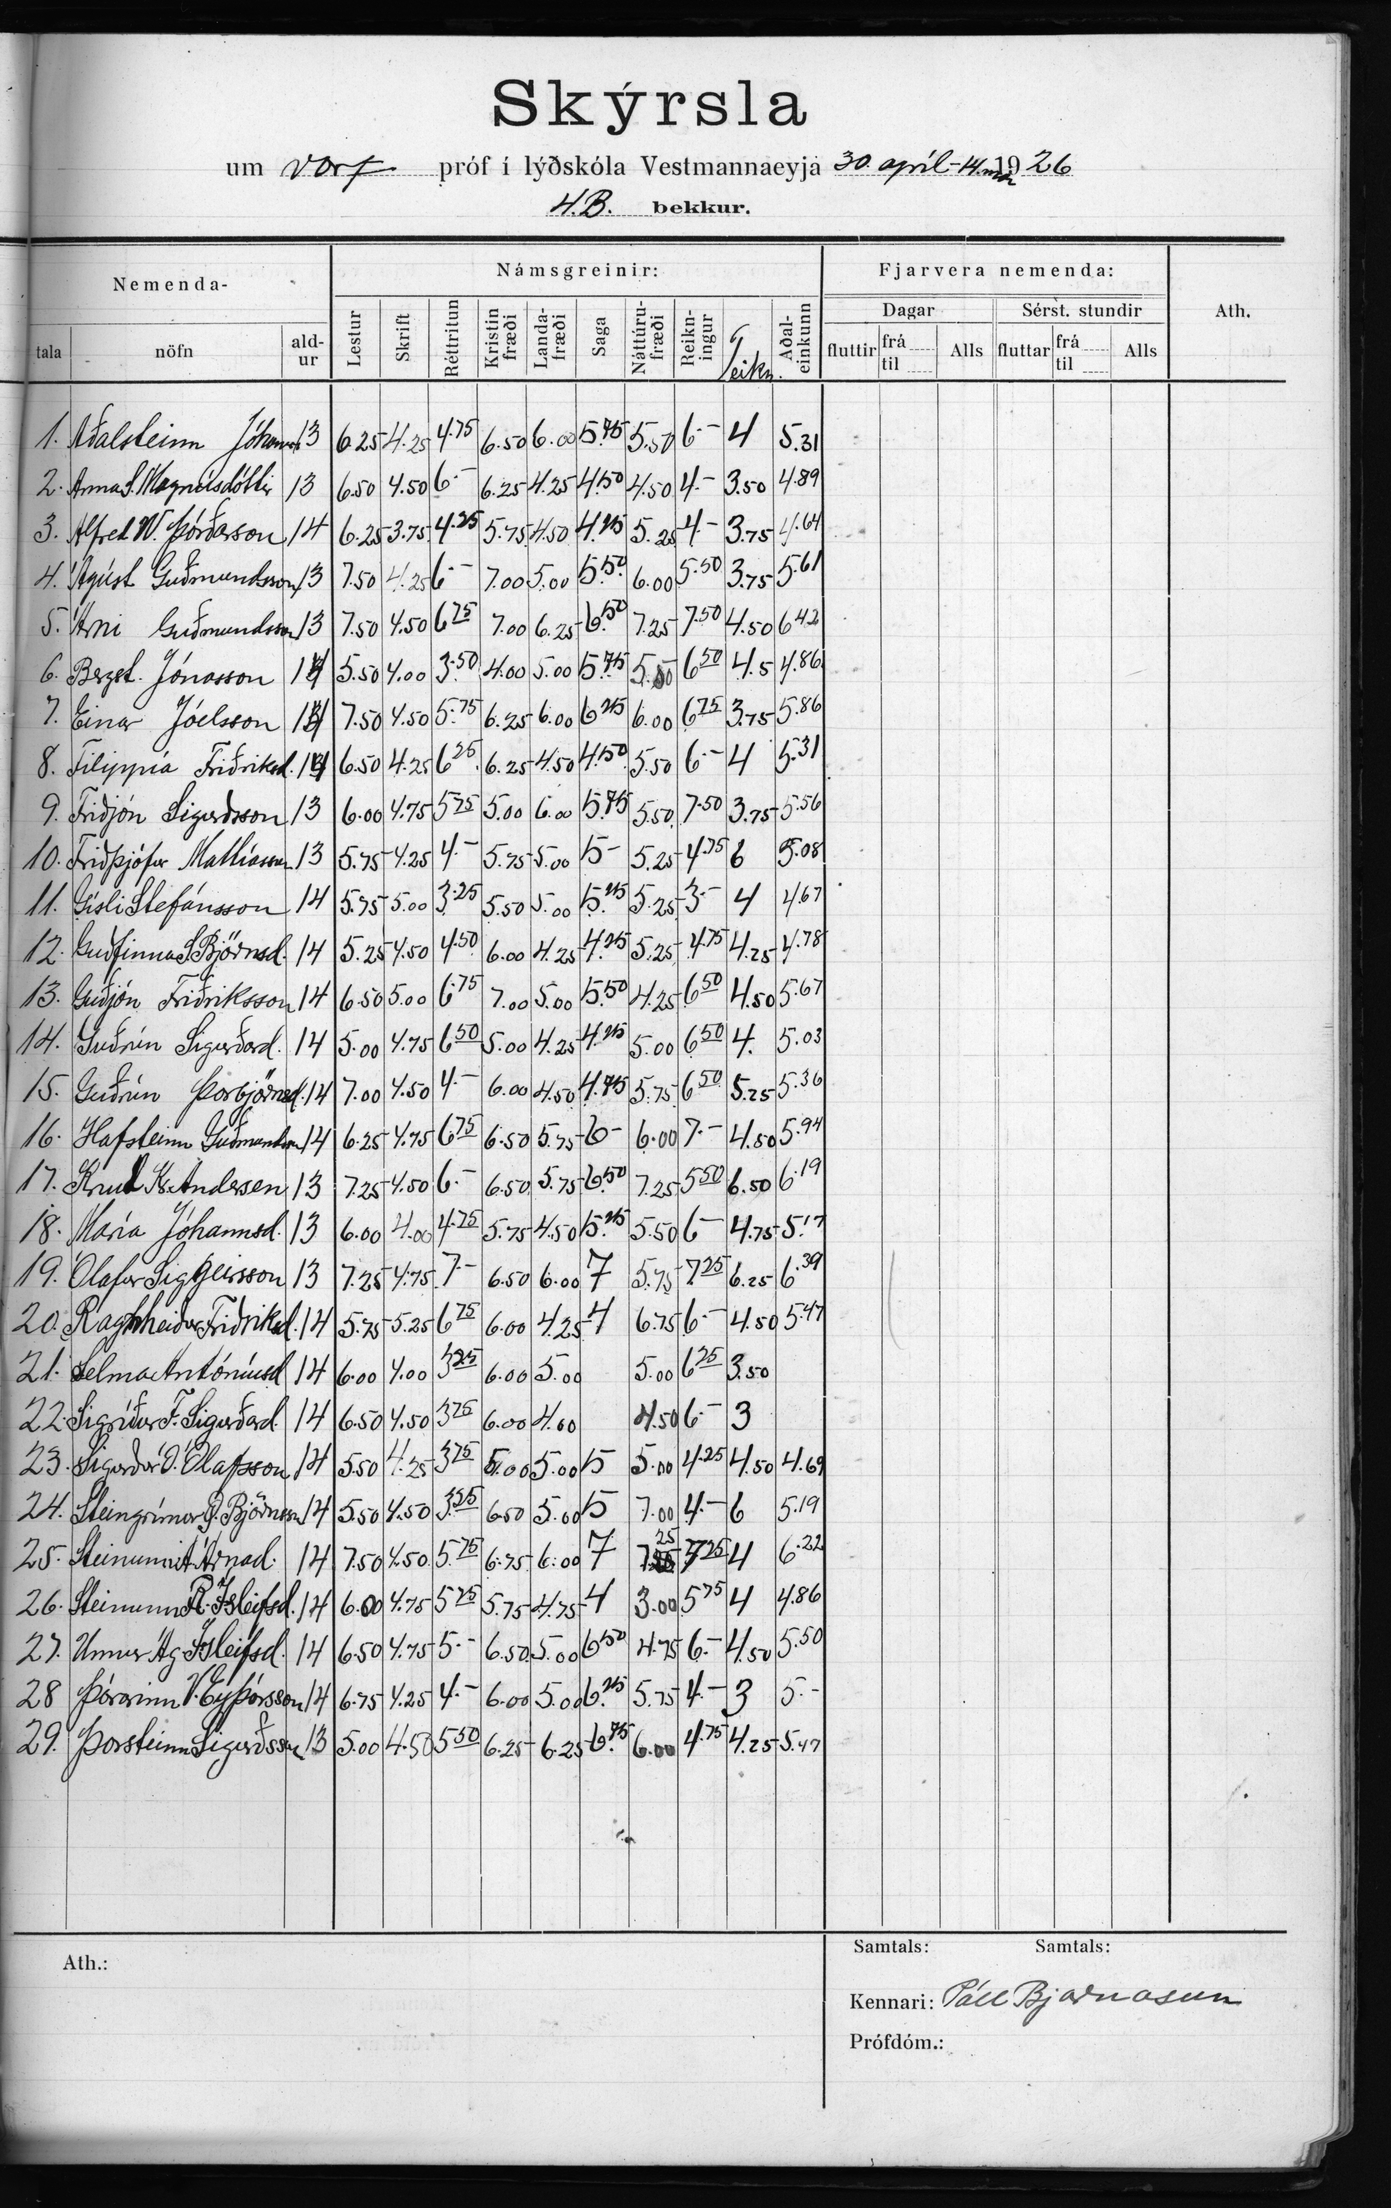 Skýrsla
um vor próf í lýðskóla Vestmannaeyja 30. apríl - 14. maí 1926
4.B. bekkur.
Nemenda- Námsgreinir: Fjarvera nemenda: Ath.
tala nöfn ald-ur Lestur Skrift Réttritun Kristin fræði Landa-fræði Saga Náttúru-fræði Reikn-ingur Teikn. Aðal-einkunn Dagar Sérst. stundir
fluttir frá til Alls fluttar frá til Alls
1. Aðalsteinn Jóhannss 13 6.25 4.25 4.75 6.50 6.00 5.75 5.50 6.- 4 5.31
2. Anna S. Magnúsdóttir 13 6.50 4.50 6.- 6.25 4.25 4.50 4.50 4.- 3.50 4.89
3. Alfred W. Þórðarson 14 6.25 3.75 4.25 5.75 4.50 4.25 5.25 4.- 3.75 4.64
4. Ágúst Guðmundsson 13 7.50 4.25 6.- 7.00 5.00 5.50 6.00 5.50 3.75 5.61
5. Árni Guðmundsson 13 7.50 4.50 6.75 7.00 6.25 6.50 7.25 7.50 4.50 6.42
6. Bergst. Jónasson 14 5.50 4.00 3.50 4.00 5.00 5.75 5.50 6.50 4.5 4.86
7. Einar Jóelsson 13 7.50 4.50 5.75 6.25 6.00 6.25 6.00 6.75 3.75 5.86
8. Filippía Friðriksd. 14 6.50 4.25 6.25 6.25 4.50 4.50 5.50 6.- 4 5.31
9. Friðjón Sigurðsson 13 6.00 4.75 5.75 5.00 6.00 5.75 5.50 7.50 3.75 5.56
10. Friðþjófur Mattíasson 13 5.75 4.25 4.- 5.75 5.00 5- 5.25 4.75 6 5.08
11. Gísli Stefánsson 14 5.75 5.00 3.25 5.50 5.00 5.25 5.25 3.- 4 4.67
12. Guðfinna S Björnsd. 14 5.25 4.50 4.50 6.00 4.25 4.25 5.25 4.75 4.25 4.78
13. Guðjón Friðriksson 14 6.50 5.00 6.75 7.00 5.00 5.50 4.25 6.50 4.50 5.67
14. Guðrún Sigurðard. 14 5.00 4.75 6.50 5.00 4.25 4.25 5.00 6.50 4. 5.03
15. Guðrún Þorbjörnsd. 14 7.00 4.50 4.- 6.00 4.50 4.75 5.75 6.50 5.25 5.36
16. Hafsteinn Guðmundsson 14 6.25 4.75 6.75 6.50 5.75 6- 6.00 7.- 4.50 5.94
17. Knud K. Andersen 13 7.25 4.50 6.- 6.50 5.75 6.50 7.25 5.50 6.50 6.19
18. María Jóhannsd. 13 6.00 4.00 4.75 5.75 4.50 5.25 5.50 6- 4.75 5.17
19. Ólafur Siggeirsson 13 7.25 4.75 7- 6.50 6.00 7 5.75 7.25 6.25 6.39
20. Ragnheiður Friðriksd. 14 5.75 5.25 6.75 6.00 4.25 4 6.75 6.- 4.50 5.47
21. Selma Antóníusd 14 6.00 4.00 3.25 6.00 5.00 5.00 6.25 3.50
22. Sigríður F. Sigurðard. 14 6.50 4.50 3.75 6.00 4.00 4.50 6.- 3
23. Sigurður Ó. Ólafsson 14 5.50 4.25 3.75 5.00 5.00 5 5.00 4.25 4.50 4.69
24. Steingrímur G. Björnsson 14 5.50 4.50 3.25 6.50 5.00 5 7.00 4.- 6 5.19
25. Steinunn A Árnad. 14 7.50 4.50 5.75 6.75 6.00 7 7.25 7.25 4 6.22
26. Steinunn R. Ísleifsd. 14 6.00 4.75 5.25 5.75 4.75 4 3.00 5.75 4 4.86
27. Unnur Ág. Ísleifsd. 14 6.50 4.75 5.- 6.50 5.00 6.50 4.75 6.- 4.50 5.50
28 Þórarinn V. Eyþórsson 14 6.75 4.25 4.- 6.00 5.00 6.25 5.75 4.- 3 5.-
29. Þorsteinn Sigurðsson 13 5.00 4.50 5.50 6.25 6.25 6.75 6.00 4.75 4.25 5.47
Ath.: Samtals: Samtals:
Kennari: Páll Bjarnason
Prófdóm.: